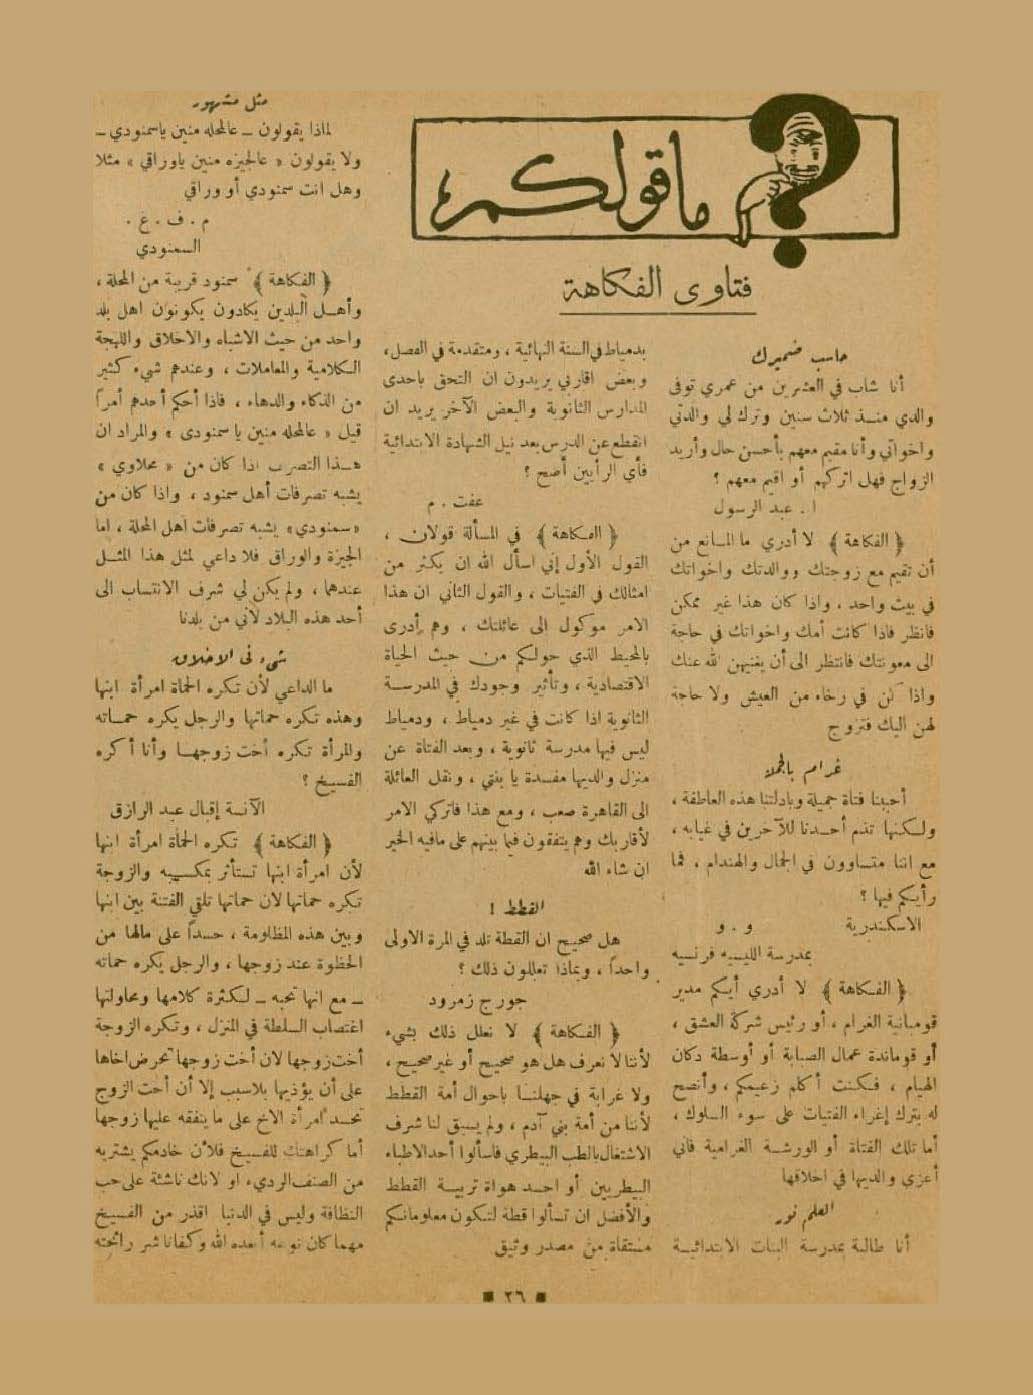 ما قولكم
فتاوى الفكاهة
حاسب ضميرك
أنا شاب في العشرين من عمري توفى
والدي منذ ثلاث سنين وترك لي والدتي
واخواتي وأنا مقيم معهم بأحسن حال وأريد
الزواج فهل اتركهم أو اقيم معهم ؟
ا . عبد الرسول
﴿ الفكاهة ﴾ لا أدري ما المانع من
أن تقيم مع زوجتك ووالدتك واخواتك
في بيت واحد ، واذا كان هذا غير ممكن
فانظر فاذا كانت أمك واخواتك في حاجة
الى معونتك فانتظر الى أن يغنيهن الله عنك
واذا كن في رخاء من العيش ولا حاجة
لهن اليك فتزوج
غرام بالجملة
أحببنا فتاة جميلة وبادلتنا هذه العاطفة ،
ولكنها تذم أحدنا للآخرين في غيابه ،
مع اننا متساوون في الجمال والهندام ، فما
رأيكم فيها ؟
الاسكندرية و . و
بمدرسة الليسيه فرنسيه
﴿ الفكاهة ﴾ لا أدري أيكم مدير
قومبانية الغرام ، أو رئيس شركة العشق ،
أو قوماندة عمال الصبابة أو أوسطة دكان
الهيام ، فكنت أكلم زعيمكم ، وأنصح
له بترك إغراء الفتيات على سوء السلوك ،
أما تلك الفتاة أو الورشة الغرامية فاني
أعزي والديها في اخلاقها
العلم نور
أنا طالبة بمدرسة البنات الابتدائية
بدمياط في السنة النهائية ، ومتقدمة في الفصل ،
وبعض اقاربي يريدون ان التحق باحدى
المدارس الثانوية والبعض الآخر يريد ان
انقطع عن الدرس بعد نيل الشهادة الابتدائية
فأي الرأيين أصح ؟
عفت . م
﴿ الفكاهة ﴾ في المسألة قولان ،
القول الأول إني اسأل الله ان يكثر من
امثالك في الفتيات ، والقول الثاني ان هذا
الامر موكول الى عائلتك ، وهم أدرى
بالمحيط الذي حولكم من حيث الحياة
الاقتصادية ، وتأثير وجودك في المدرسة
الثانوية اذا كانت في غير دمياط ، ودمياط
ليس فيها مدرسة ثانوية ، وبعد الفتاة عن
منزل والديها مفسدة يا بنتي ، ونقل العائلة
الى القاهرة صعب ، ومع هذا فاتركي الامر
لأقاربك وهم يتفقون فيما بينهم على مافيه الخير
ان شاء الله
القطط !
هل صحيح ان القطة تلد في المرة الاولى
واحداً ، وبماذا تعللون ذلك ؟
جورج زمرود
﴿ الفكاهة ﴾ لا نعلل ذلك بشيء
لأننا لا نعرف هل هو صحيح أو غير صحيح ،
ولا غرابة في جهلنا باحوال أمة القطط
لأننا من أمة بني آدم ، ولم يسبق لنا شرف
الاشتغال بالطب البيطري فاسألوا أحد الاطباء
البيطريين أو احد هواة تربية القطط
والأفضل ان تسألوا قطة لتكون معلوماتكم
مستقاة من مصدر وثيق
مثل مشهور
لماذا يقولون ــ عالمحله منين ياسمنودي ــ
ولا يقولون « عالجيزه منين ياوراقي » مثلا
وهل انت سمنودي أو وراقي
م . ف . غ .
السمنودي
﴿ الفكاهة ﴾ سمنود قريبة من المحلة ،
وأهل البلدين يكادون يكونون اهل بلد
واحد من حيث الاشباه والاخلاق واللهجة
الكلامية والمعاملات ، وعندهم شيء كثير
من الذكاء والدهاء ، فاذا أحكم أحدهم أمراً
قيل « عالمحله منين يا سمنودى » والمراد ان
هذا التصرف اذا كان من « محلاوي »
يشبه تصرفات أهل سمنود ، واذا كان من
«سمنودي» يشبه تصرفات أهل المحلة ، اما
الجيزة والوراق فلا داعي لمثل هذا المثل
عندهما ، ولم يكن لي شرف الانتساب الى
أحد هذه البلاد لأني من بلدنا
شيء في الاخلاق
ما الداعي لأن تكره الحماة امرأة ابنها
وهذه تكره حماتها والرجل يكره حماته
والمرأة تكره أخت زوجها وأنا أكره
الفسيخ ؟
الآنسة إقبال عبد الرازق
﴿ الفكاهة ﴾ تكره الحماة امرأة ابنها
لأن امرأة ابنها تستأثر بمكسبه والزوجة
تكره حماتها لان حماتها تلقي الفتنة بين ابنها
وبين هذه المظلومة ، حسداً على مالها من
الحظوة عند زوجها ، والرجل يكره حماته
ــ مع انها تحبه ــ لكثرة كلامها ومحاولتها
اغتصاب السلطة في المنزل ، وتكره الزوجة
أخت زوجها لان أخت زوجها تحرض اخاها
على أن يؤذيها بلاسبب إلا أن أخت الزوج
تحسد امرأة الاخ على ما ينفقه عليها زوجها
أما كراهتك للفسيخ فلأن خادمكم يشتريه
من الصنف الرديء او لانك ناشئة على حب
النظافة وليس في الدنيا اقذر من الفسيخ
مهما كان نوعه أبعده الله وكفانا شر رائحته
٢٦